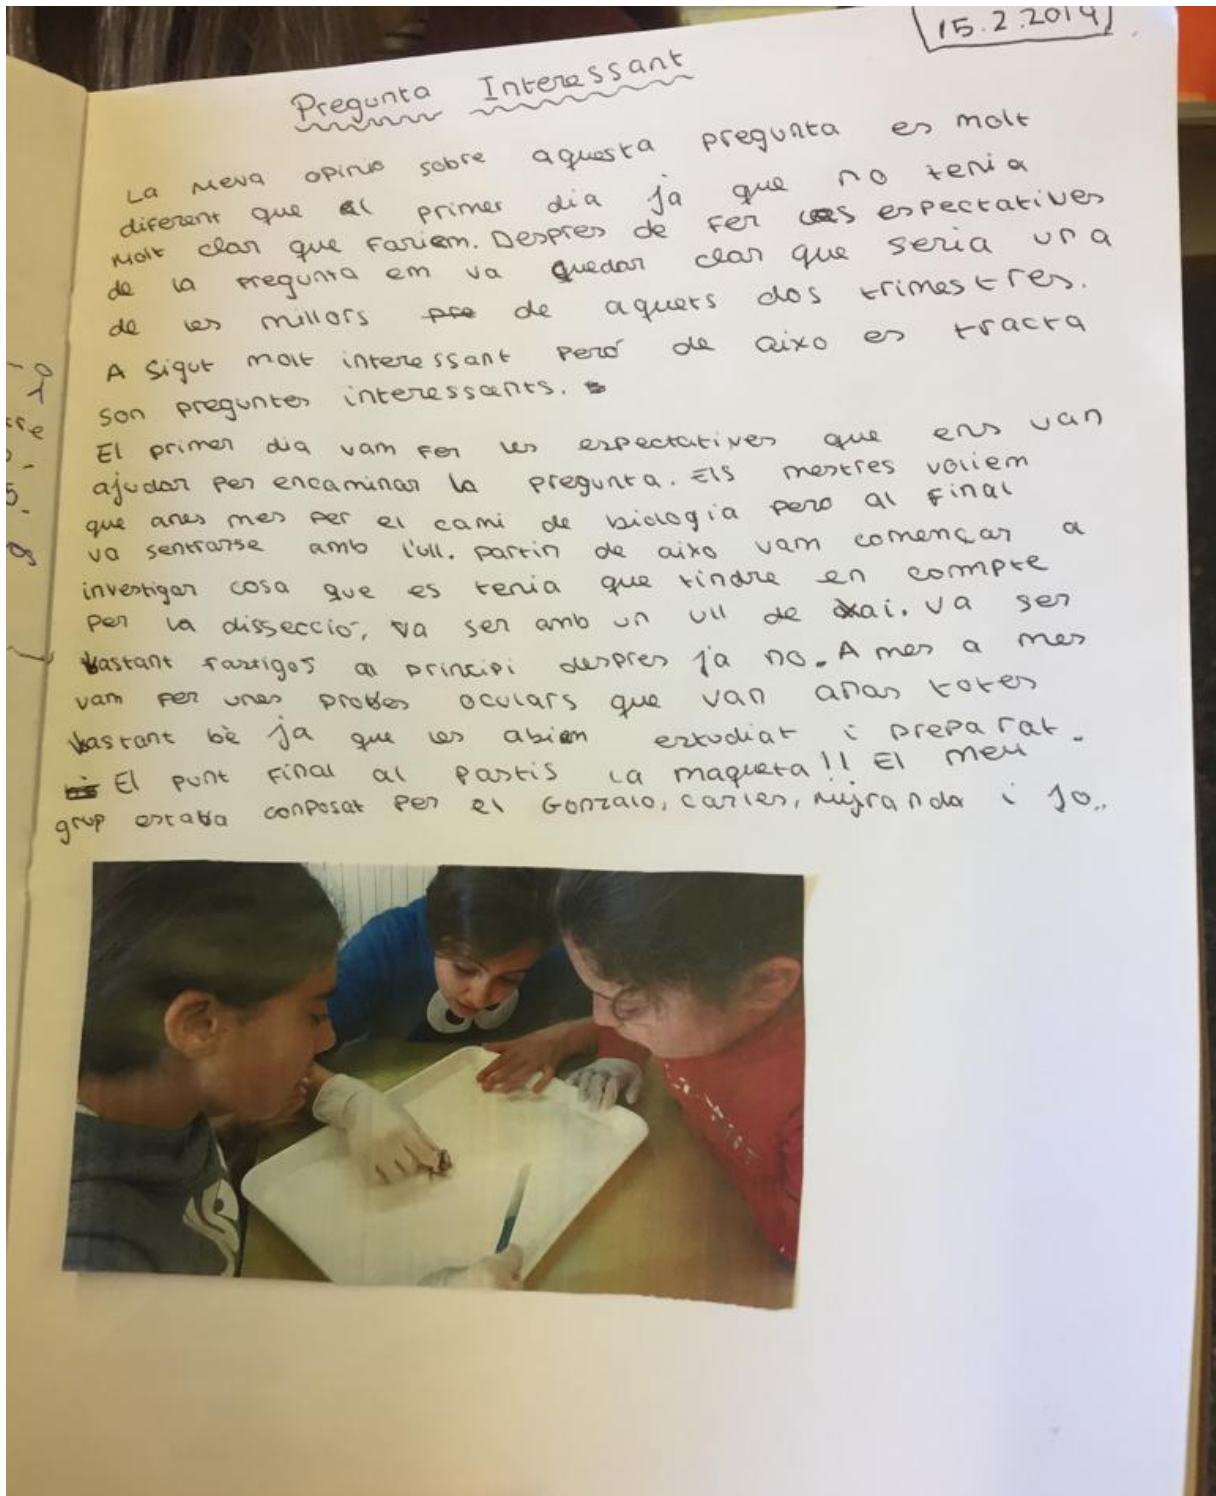 15.2.2019
Pregunta Interessant
La meva opinio sobre aquesta pregunta es molt
diferent que el primer dia ja que no tenia
molt clar que fariem. Despres de fer les espectatives
de la pregunta em va quedar clar que seria una
de les millors pre de aquets dos trimestres.
A sigut molt interessant peró de aixo es tracta
son preguntes interessants.
El primer dia vam fer les espectatives que ens van
ajudar per encaminar la pregunta. Els mestres voliem
que anes mes per el cami de biologia pero al final
va sentrarse amb l'ull. partin de aixo vam començar a
investigar cosa que es tenia que tindre en compte
per la dissecció, va ser amb un ull de xai. va ser
bastant fastigos al principi despres ja no. A mes a mes
vam fer unes probes oculars que van anar totes
bastant bè ja que les abien estudiat i preparat.
El punt final al pastis la maqueta!! El meu
grup estaba conposat per el Gonzalo, carles, i jo..